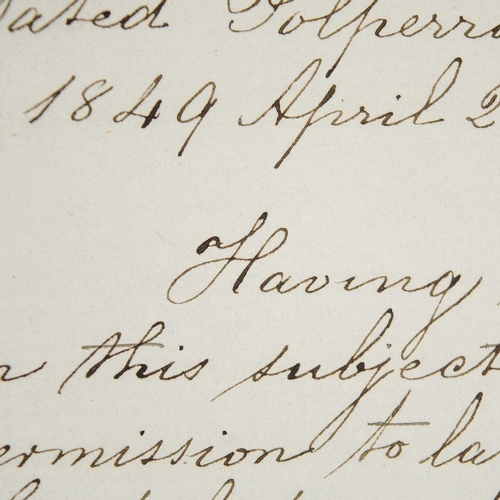 ated Polperro
1849 April 2
Having
this subject
ermission to la